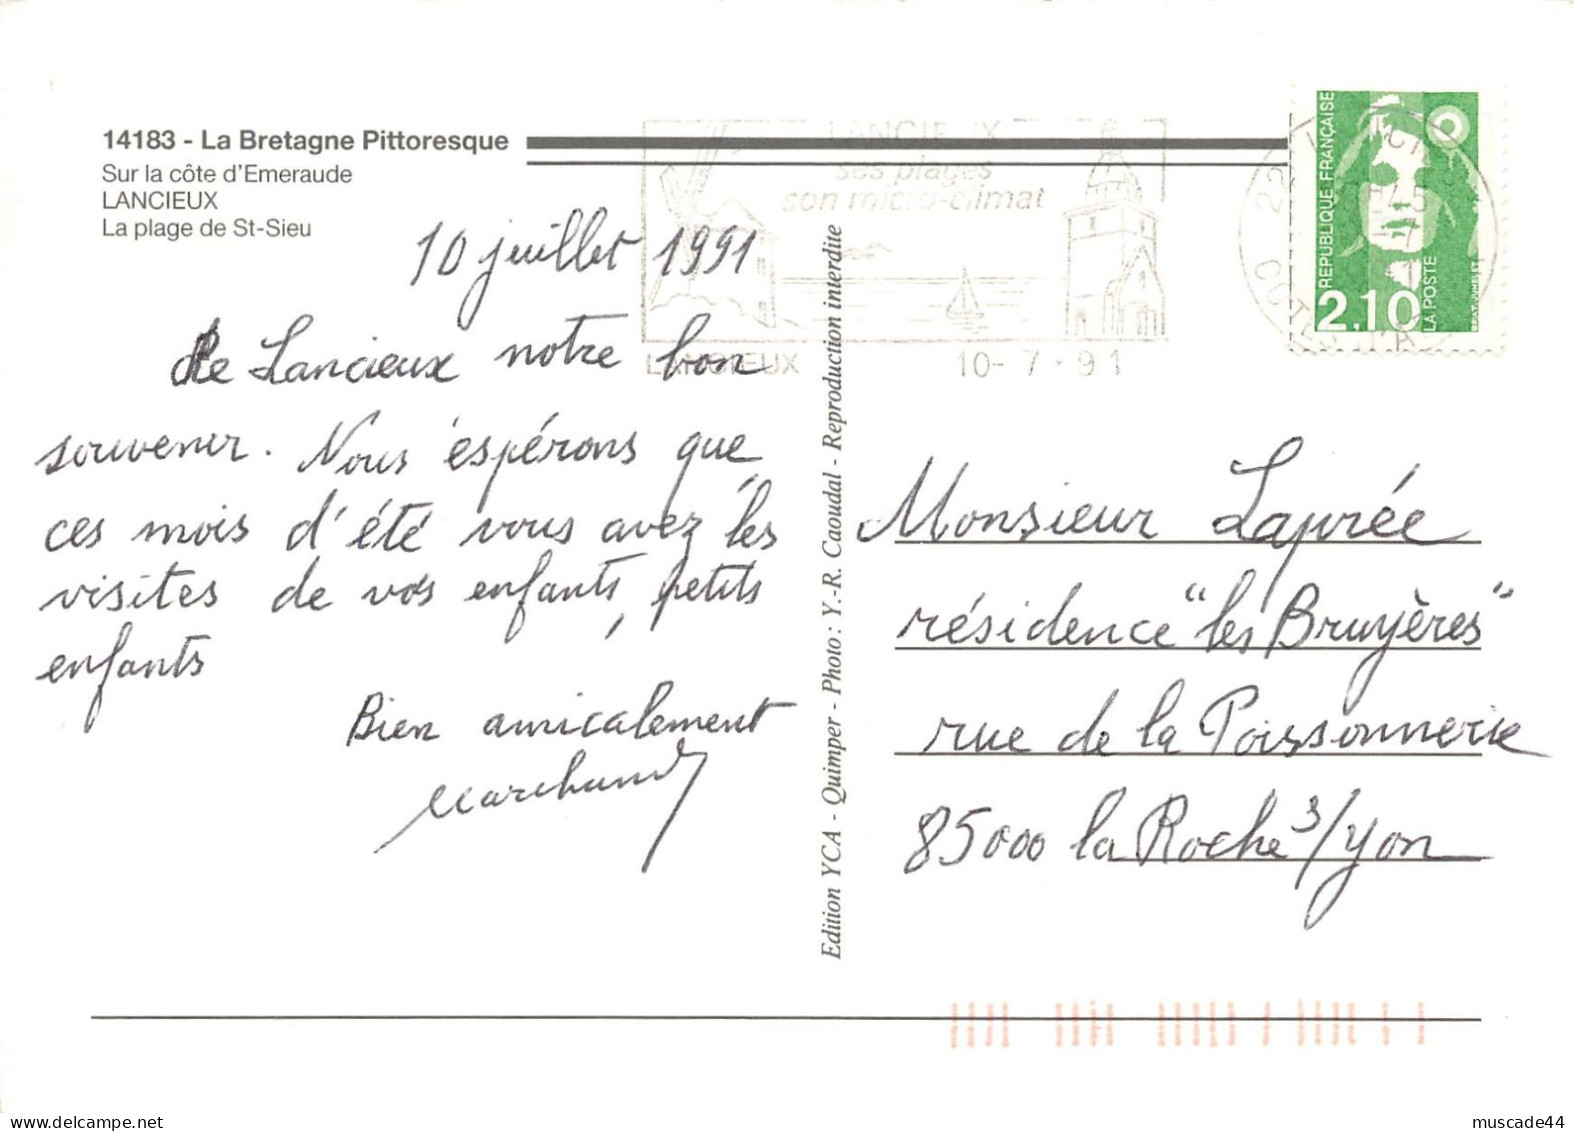 14183 - La Bretagne Pittoresque
Sur la côte d'Emeraude
LANCIEUX
La plage de St-Sieu
LANCIEUX
ses plages
son micro-climat
LANCIEUX
10-7-91
REPUBLIQUE FRANÇAISE
2,10
LA POSTE
10 juillet 1991
de Lancieux notre bon
souvenir. Nous espérons que
ces mois d'été vous avez les
visites de vos enfants, petits
enfants
Bien amicalement
Marchand
Edition YCA - Quimper - Photo : Y.-R. Caoudal - Reproduction interdite
Monsieur Laprée
résidence "les Bruyères"
rue de la Poissonnerie
85000 la Roche s/Yon
muscade44